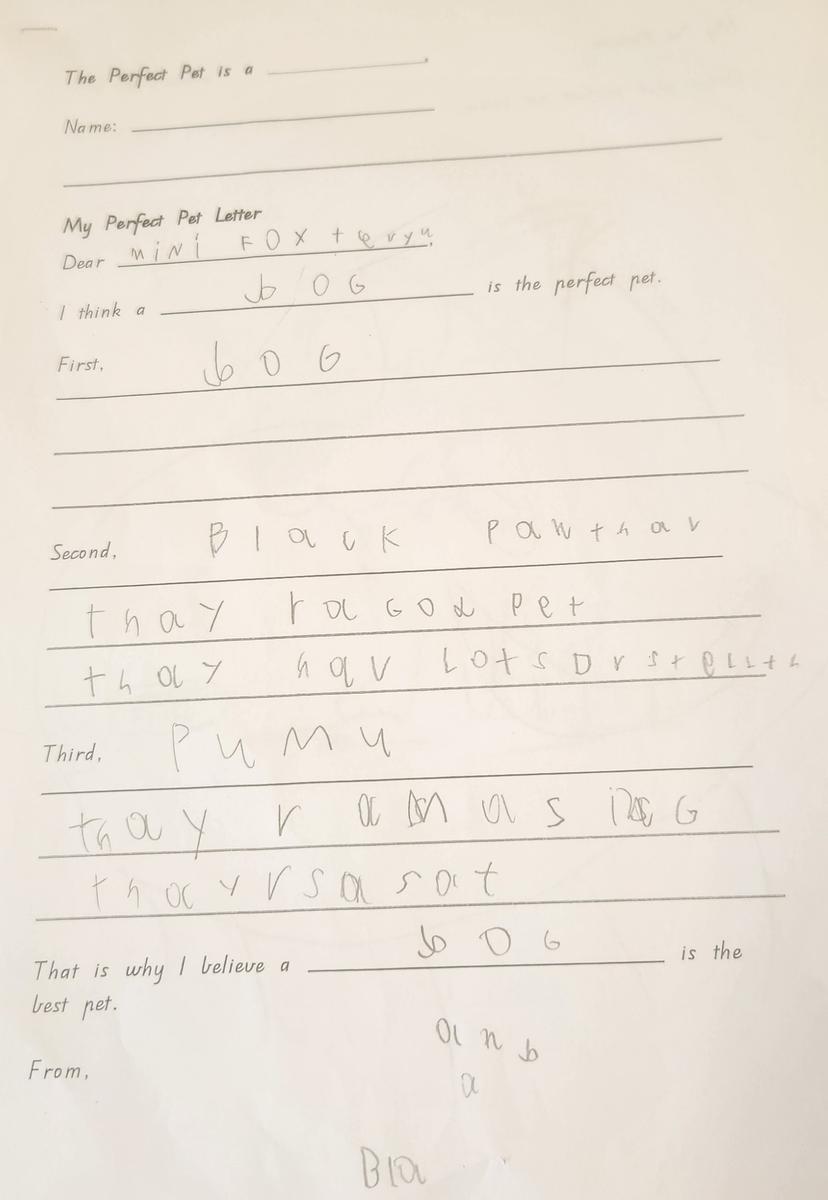 The Perfect Pet is a
Name:
My Perfect Pet Letter
Dear MiNi FOX tervyu,
I think a bOG is the perfect pet.
First, bOG
Second, Black Panthar
thay r a GOd Pet
thay hav Lots Ov stellth
Third, PuMu
thay r a M a s iNG
thay r s a s a t
That is why I believe a bOG is the
best pet.
anb
From,
a
Bla